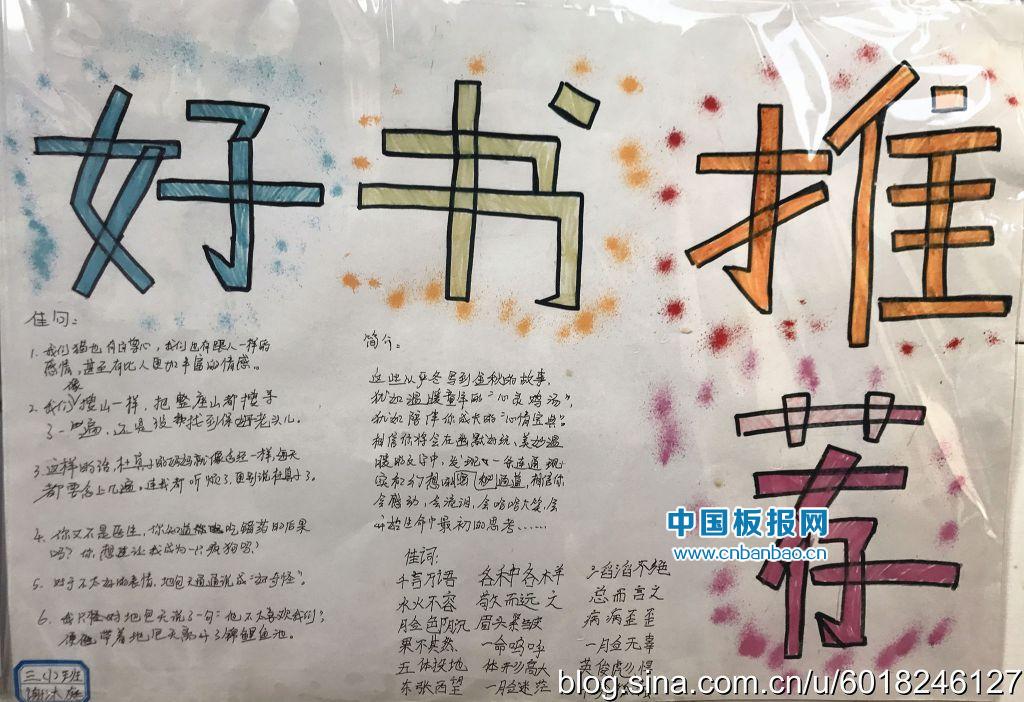 好书推荐
佳句:
1. 我们猫也有自尊心，我们也有跟人一样的
感情，甚至有比人更加丰富的情感。
2. 我们像搜山一样，把整座山都搜寻
了一遍，还是没找到保姆老头儿。
3. 这样的话，杜真子的妈妈就像念经一样，每天
都要念上几遍，连我都听烦了，更别说杜真子了。
4. 你又不是医生，你知道吃错药的后果
吗？你想让我成为一只疯狗吗？
5. 对于不太好的表情，地包天通通说成“好奇怪”。
6. 我只好对地包天说了一句：他不太喜欢我们，
便带着地包天离开了锦鲤鱼池。
三(1)班
简介:
这些从严冬写到金秋的故事，
犹如温暖童年的“心灵鸡汤”，
犹如陪伴你成长的“心情宝典”。
相信你将会在幽默力线、美妙温
暖的文字中，发现一条连通现
实和幻想的通道，相信你
会感动，会流泪，会哈哈大笑，会
开启生命中最初的思考……
佳词:
千言万语 各种各样 滔滔不绝
水火不容 敬而远之 总而言之
脸色阴沉 眉头紧皱 病病歪歪
果不其然 一命呜呼 一脸无辜
五体投地 体形高大 英俊彪悍
东张西望 一脸迷茫
中国板报网
www.cnbanbao.cn
blog.sina.com.cn/u/6018246127